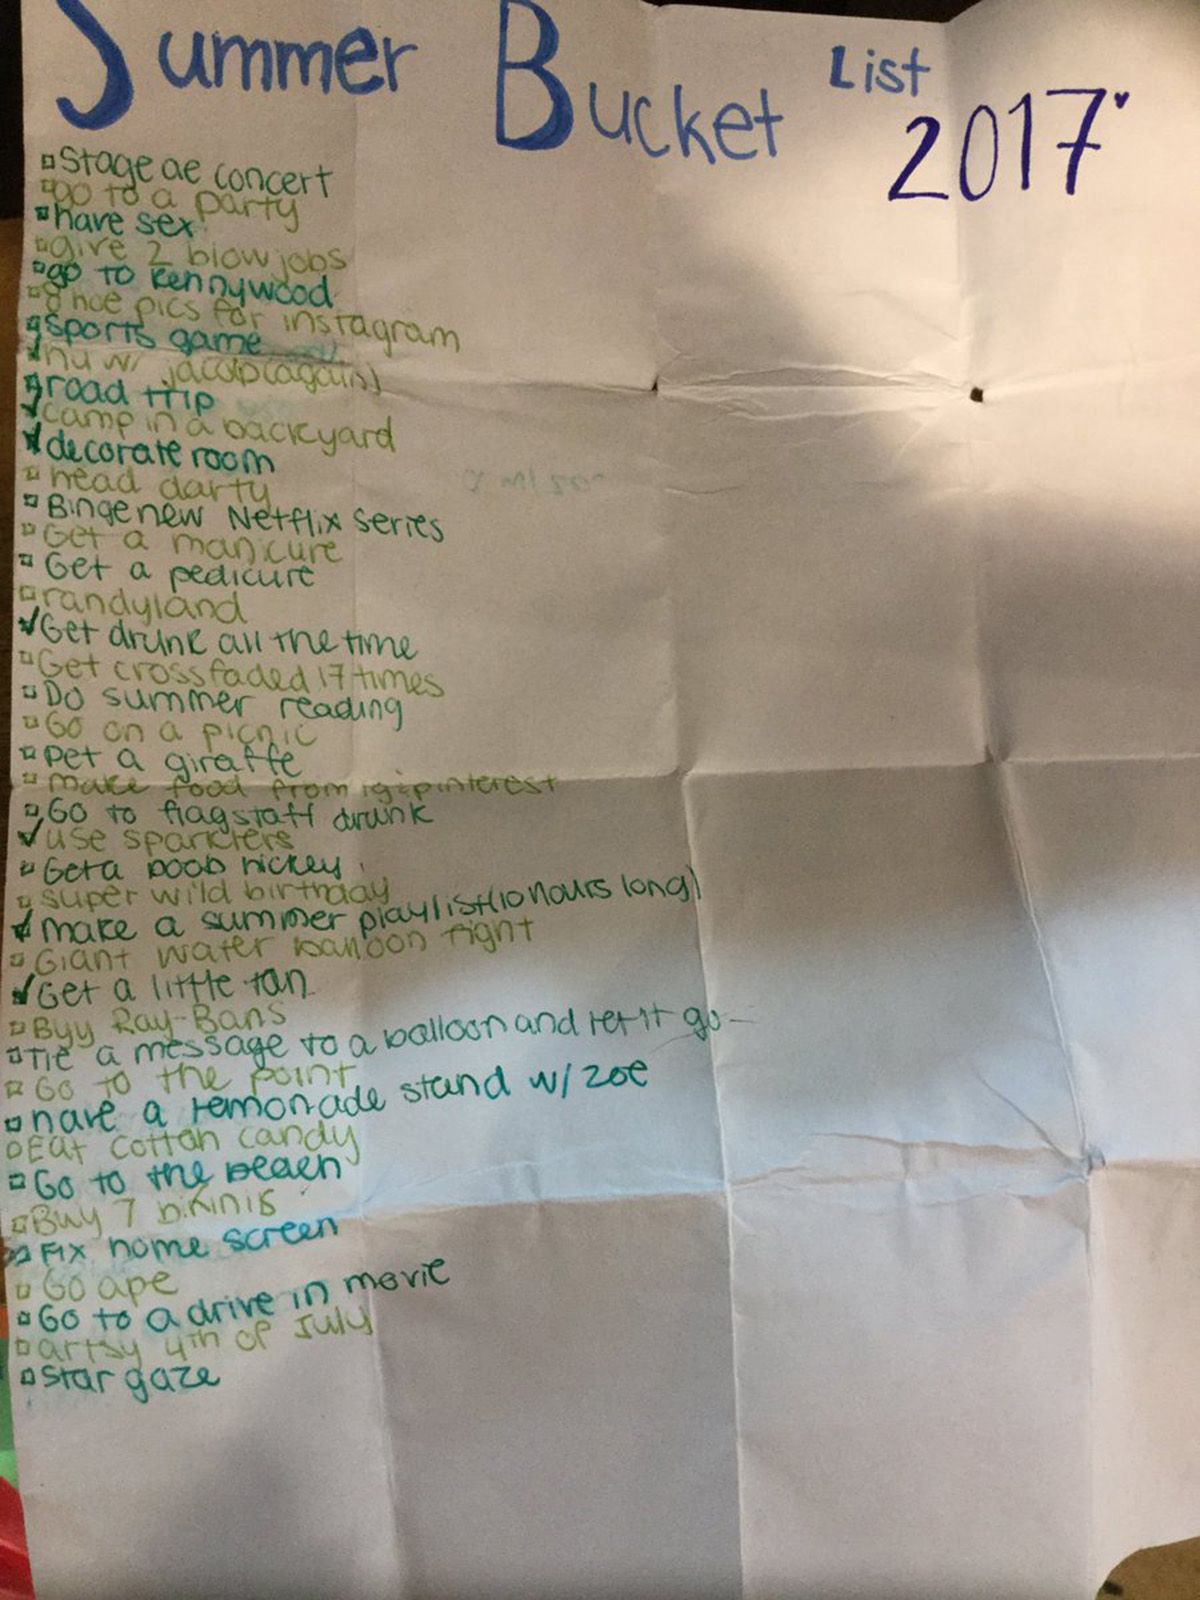 Summer Bucket List
2017
Stage ae concert
go to a party
have sex
give 2 blow jobs
go to Kennywood
pics for instagram
sports game
hu w/ jacob (again)
road trip
camp in a backyard
decorate room
head darty
Binge new Netflix series
Get a manicure
Get a pedicure
randyland
Get drunk all the time
Get crossfaded 17 times
Do summer reading
Go on a picnic
pet a giraffe
make food from ig & pinterest
Go to flagstaff drunk
use sparklers
Get a boob hickey
super wild birthday
make a summer playlist (10 hours long)
Giant water balloon fight
Get a little tan
Buy Ray-Bans
Tie a message to a balloon and let it go
Go to the point
have a lemonade stand w/ zoe
Eat cotton candy
Go to the beach
Buy 7 bikinis
Fix home screen
Go ape
Go to a drive in movie
artsy 4th of July
star gaze